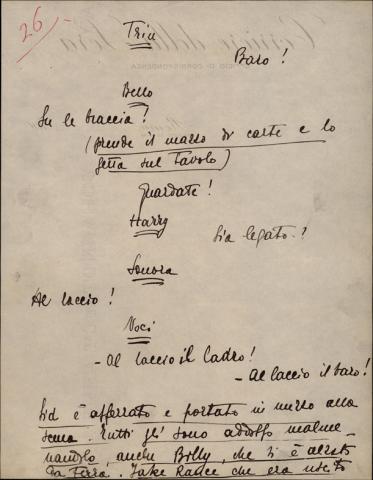 26
Trin
Baro!
Bello
Su le braccia!
(prende il mazzo di carte e lo
getta sul tavolo)
Guardate!
Harry
Sia legato!
Sonora
Al laccio!
Voci
- Al laccio il ladro!
- Al laccio il baro!
Sid è afferrato e portato in mezzo alla
scena. Tutti gli sono addosso malme-
nandolo, anche Billy, che si è alzato
da terra. Jake Rance che era uscito